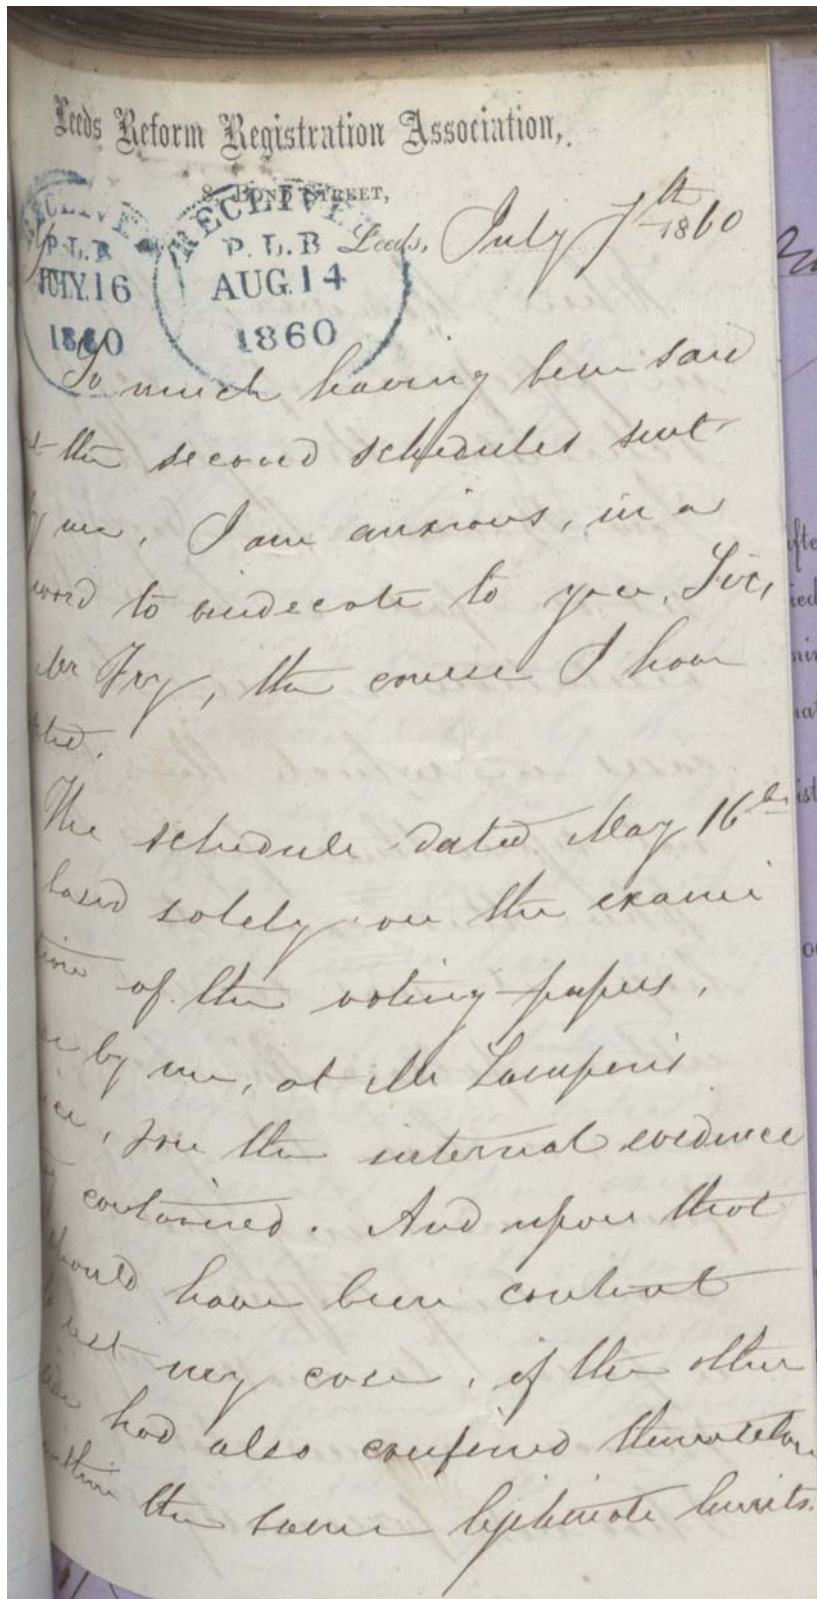 Leeds Reform Registration Association,
8, BOND STREET,
Leeds, July 7th 1860
RECEIVED
P.L.B
JULY.16
1860
RECEIVED
P.L.B
AUG.14
1860
So much having been said
the second schedules sent
by me, I am anxious, in a
word to vindicate to you, Sir,
Mr Fry, the course I have
The schedule dated May 16th
based solely on the exami
tion of the voting-papers,
by me, at Mr Lampen's
the internal evidence
contained. And upon that
should have been content
rest my case, if the other
side had also confined themselves
within the same legitimate limits.